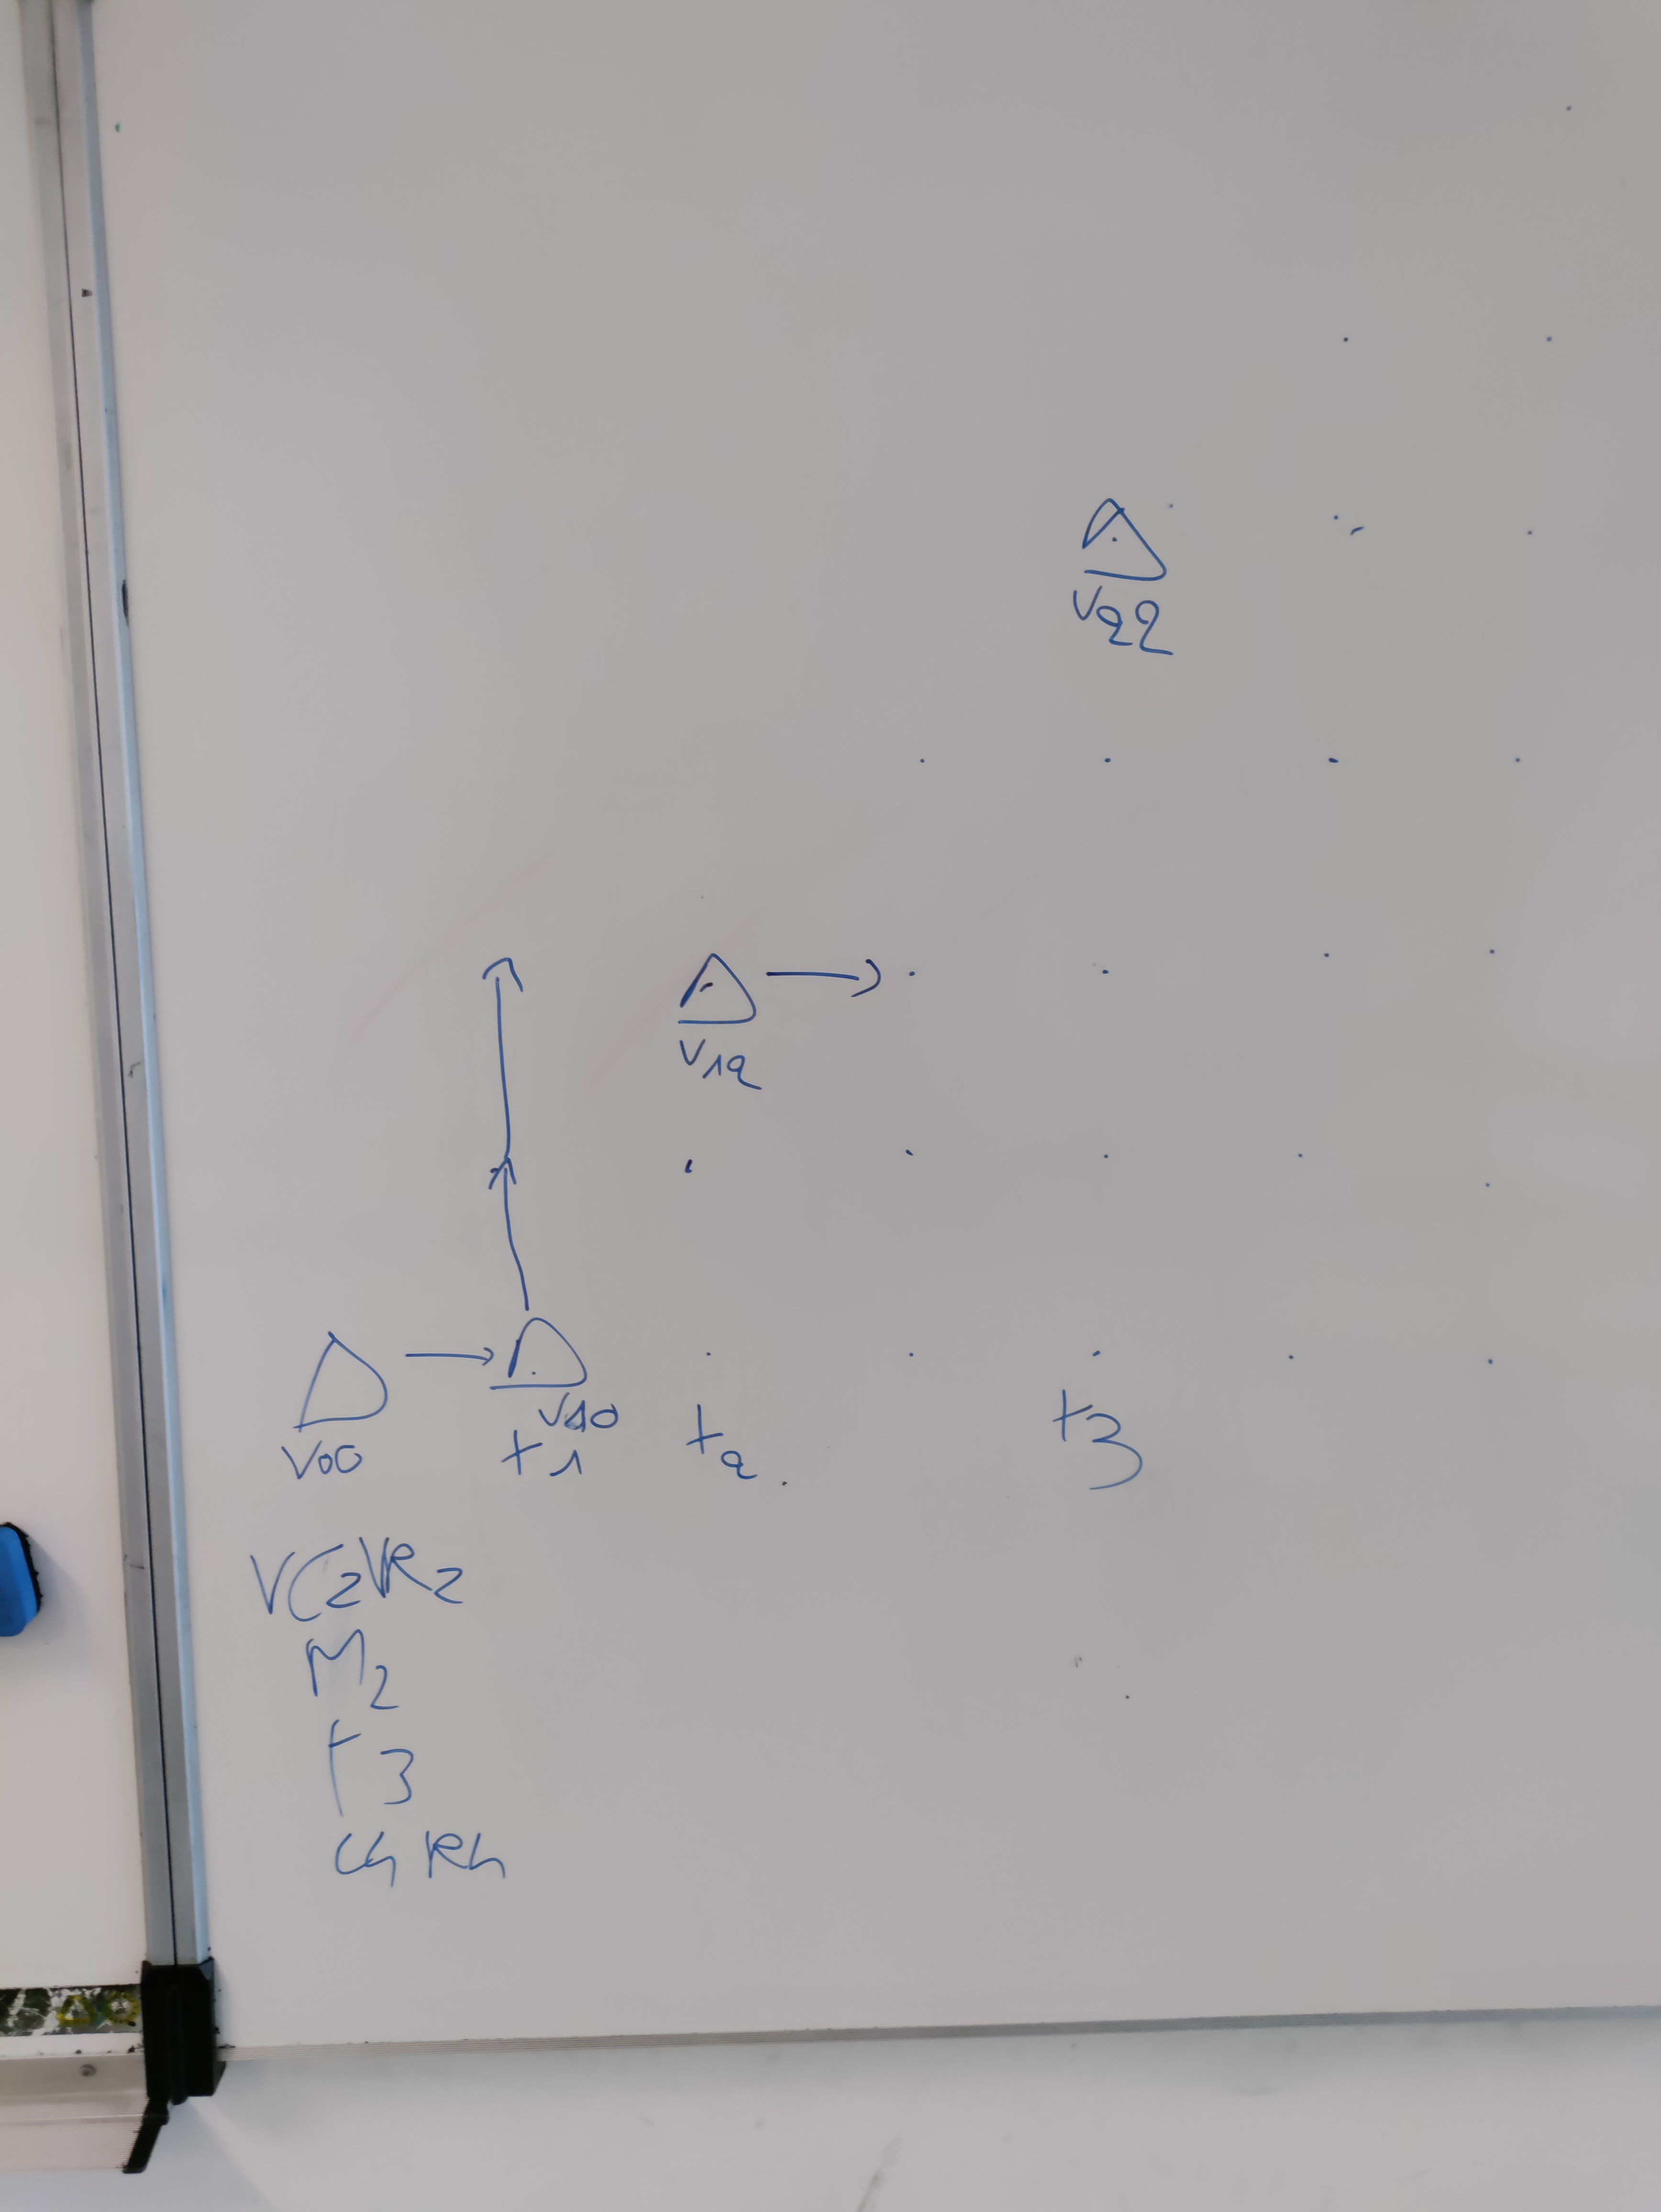 V22
V12
V00
V10
t1
t2
t3
VC2VR2
M2
t3
C4 R4